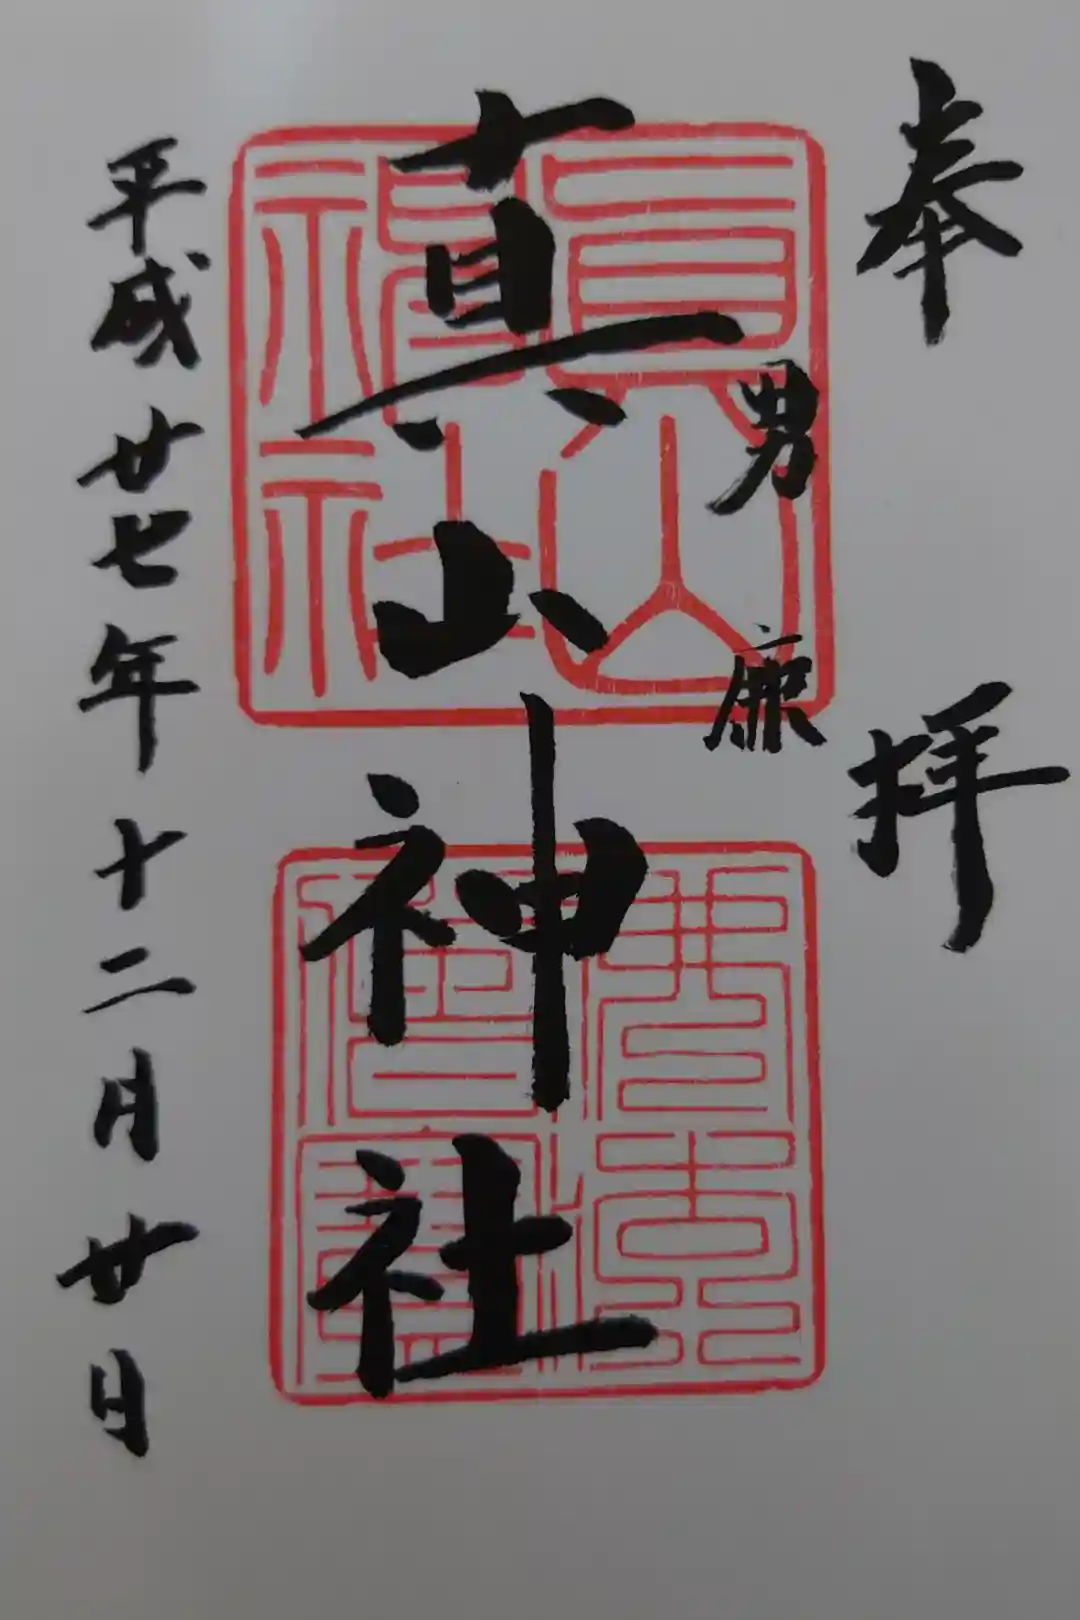 奉拝
男鹿
真山神社
眞山
神社
平成廿七年十二月廿日